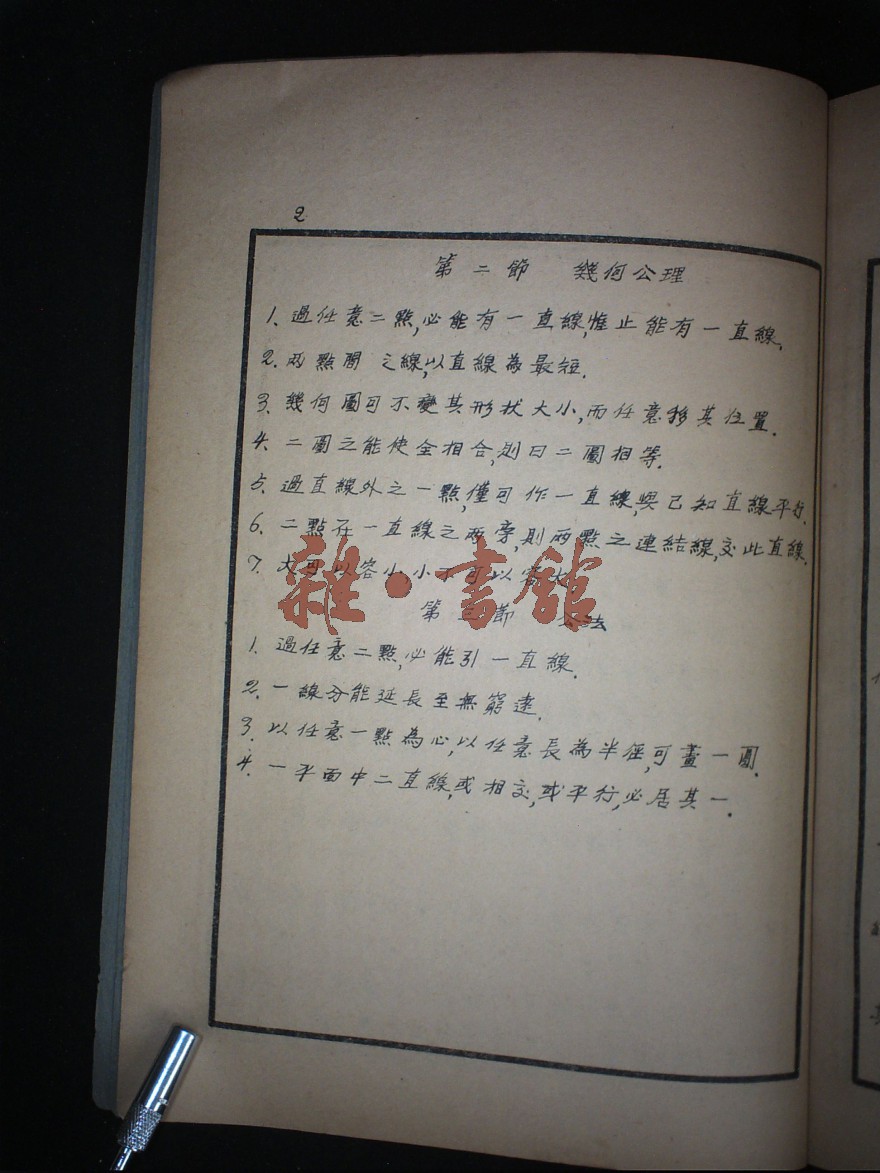 2
第二節 幾何公理
1. 過任意二點,必能有一直線,惟止能有一直線.
2. 兩點間之線,以直線為最短.
3. 幾何圖可不變其形狀大小,而任意移其位置.
4. 二圖之能使全相合,則曰二圖相等.
5. 過直線外之一點,僅可作一直線,與已知直線平行.
6. 二點在一直線之兩旁,則兩點之連結線,交此直線.
7. 大可以容小小不可以容大
第三節 公法
1. 過任意二點,必能引一直線.
2. 一線分能延長至無窮遠.
3. 以任意一點為心,以任意長為半徑,可畫一圓.
4. 一平面中二直線,或相交,或平行,必居其一.
雜·書館